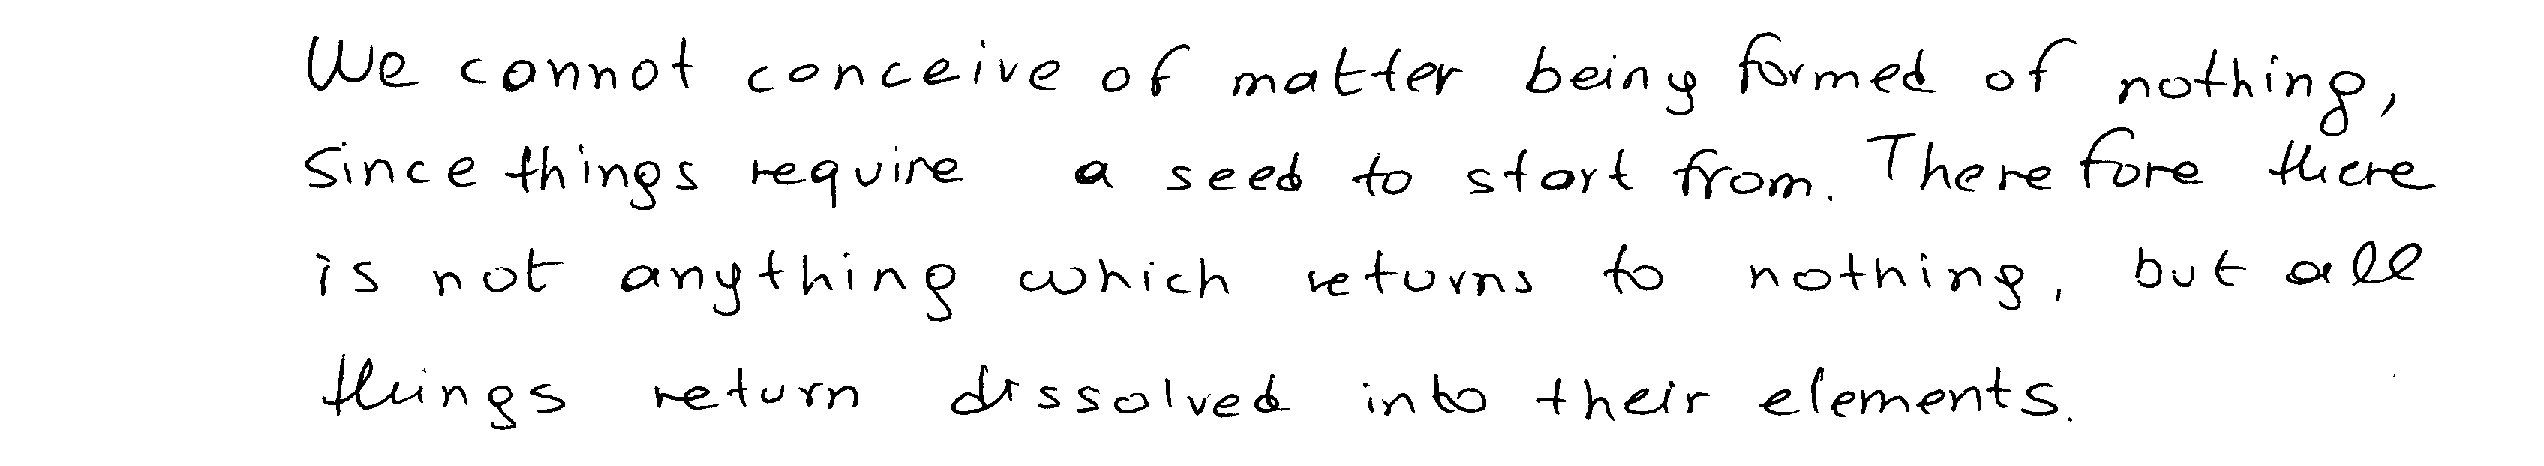 We cannot conceive of matter being formed of nothing,
since things require a seed to start from. Therefore there
is not anything which returns to nothing, but all
things return dissolved into their elements.